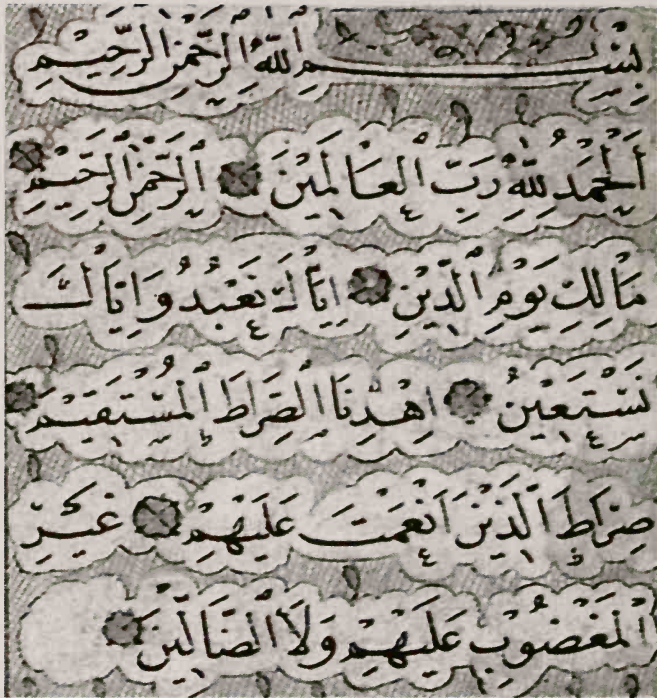 بِسْمِ ٱللَّهِ ٱلرَّحْمٰنِ ٱلرَّحِيْمِ
اَلْحَمْدُ لِلّٰهِ رَبِّ ٱلْعَالَمِيْنَ ٱلرَّحْمٰنِ ٱلرَّحِيْمِ
مَالِكِ يَوْمِ ٱلدِّيْنِ اِيَّاكَ نَعْبُدُ وَاِيَّاكَ
نَسْتَعِيْنُ اِهْدِنَا ٱلصِّرَاطَ ٱلْمُسْتَقِيْمَ
صِرَاطَ ٱلَّذِيْنَ اَنْعَمْتَ عَلَيْهِمْ غَيْرِ
ٱلْمَغْضُوْبِ عَلَيْهِمْ وَلَا ٱلضَّالِّيْنَ